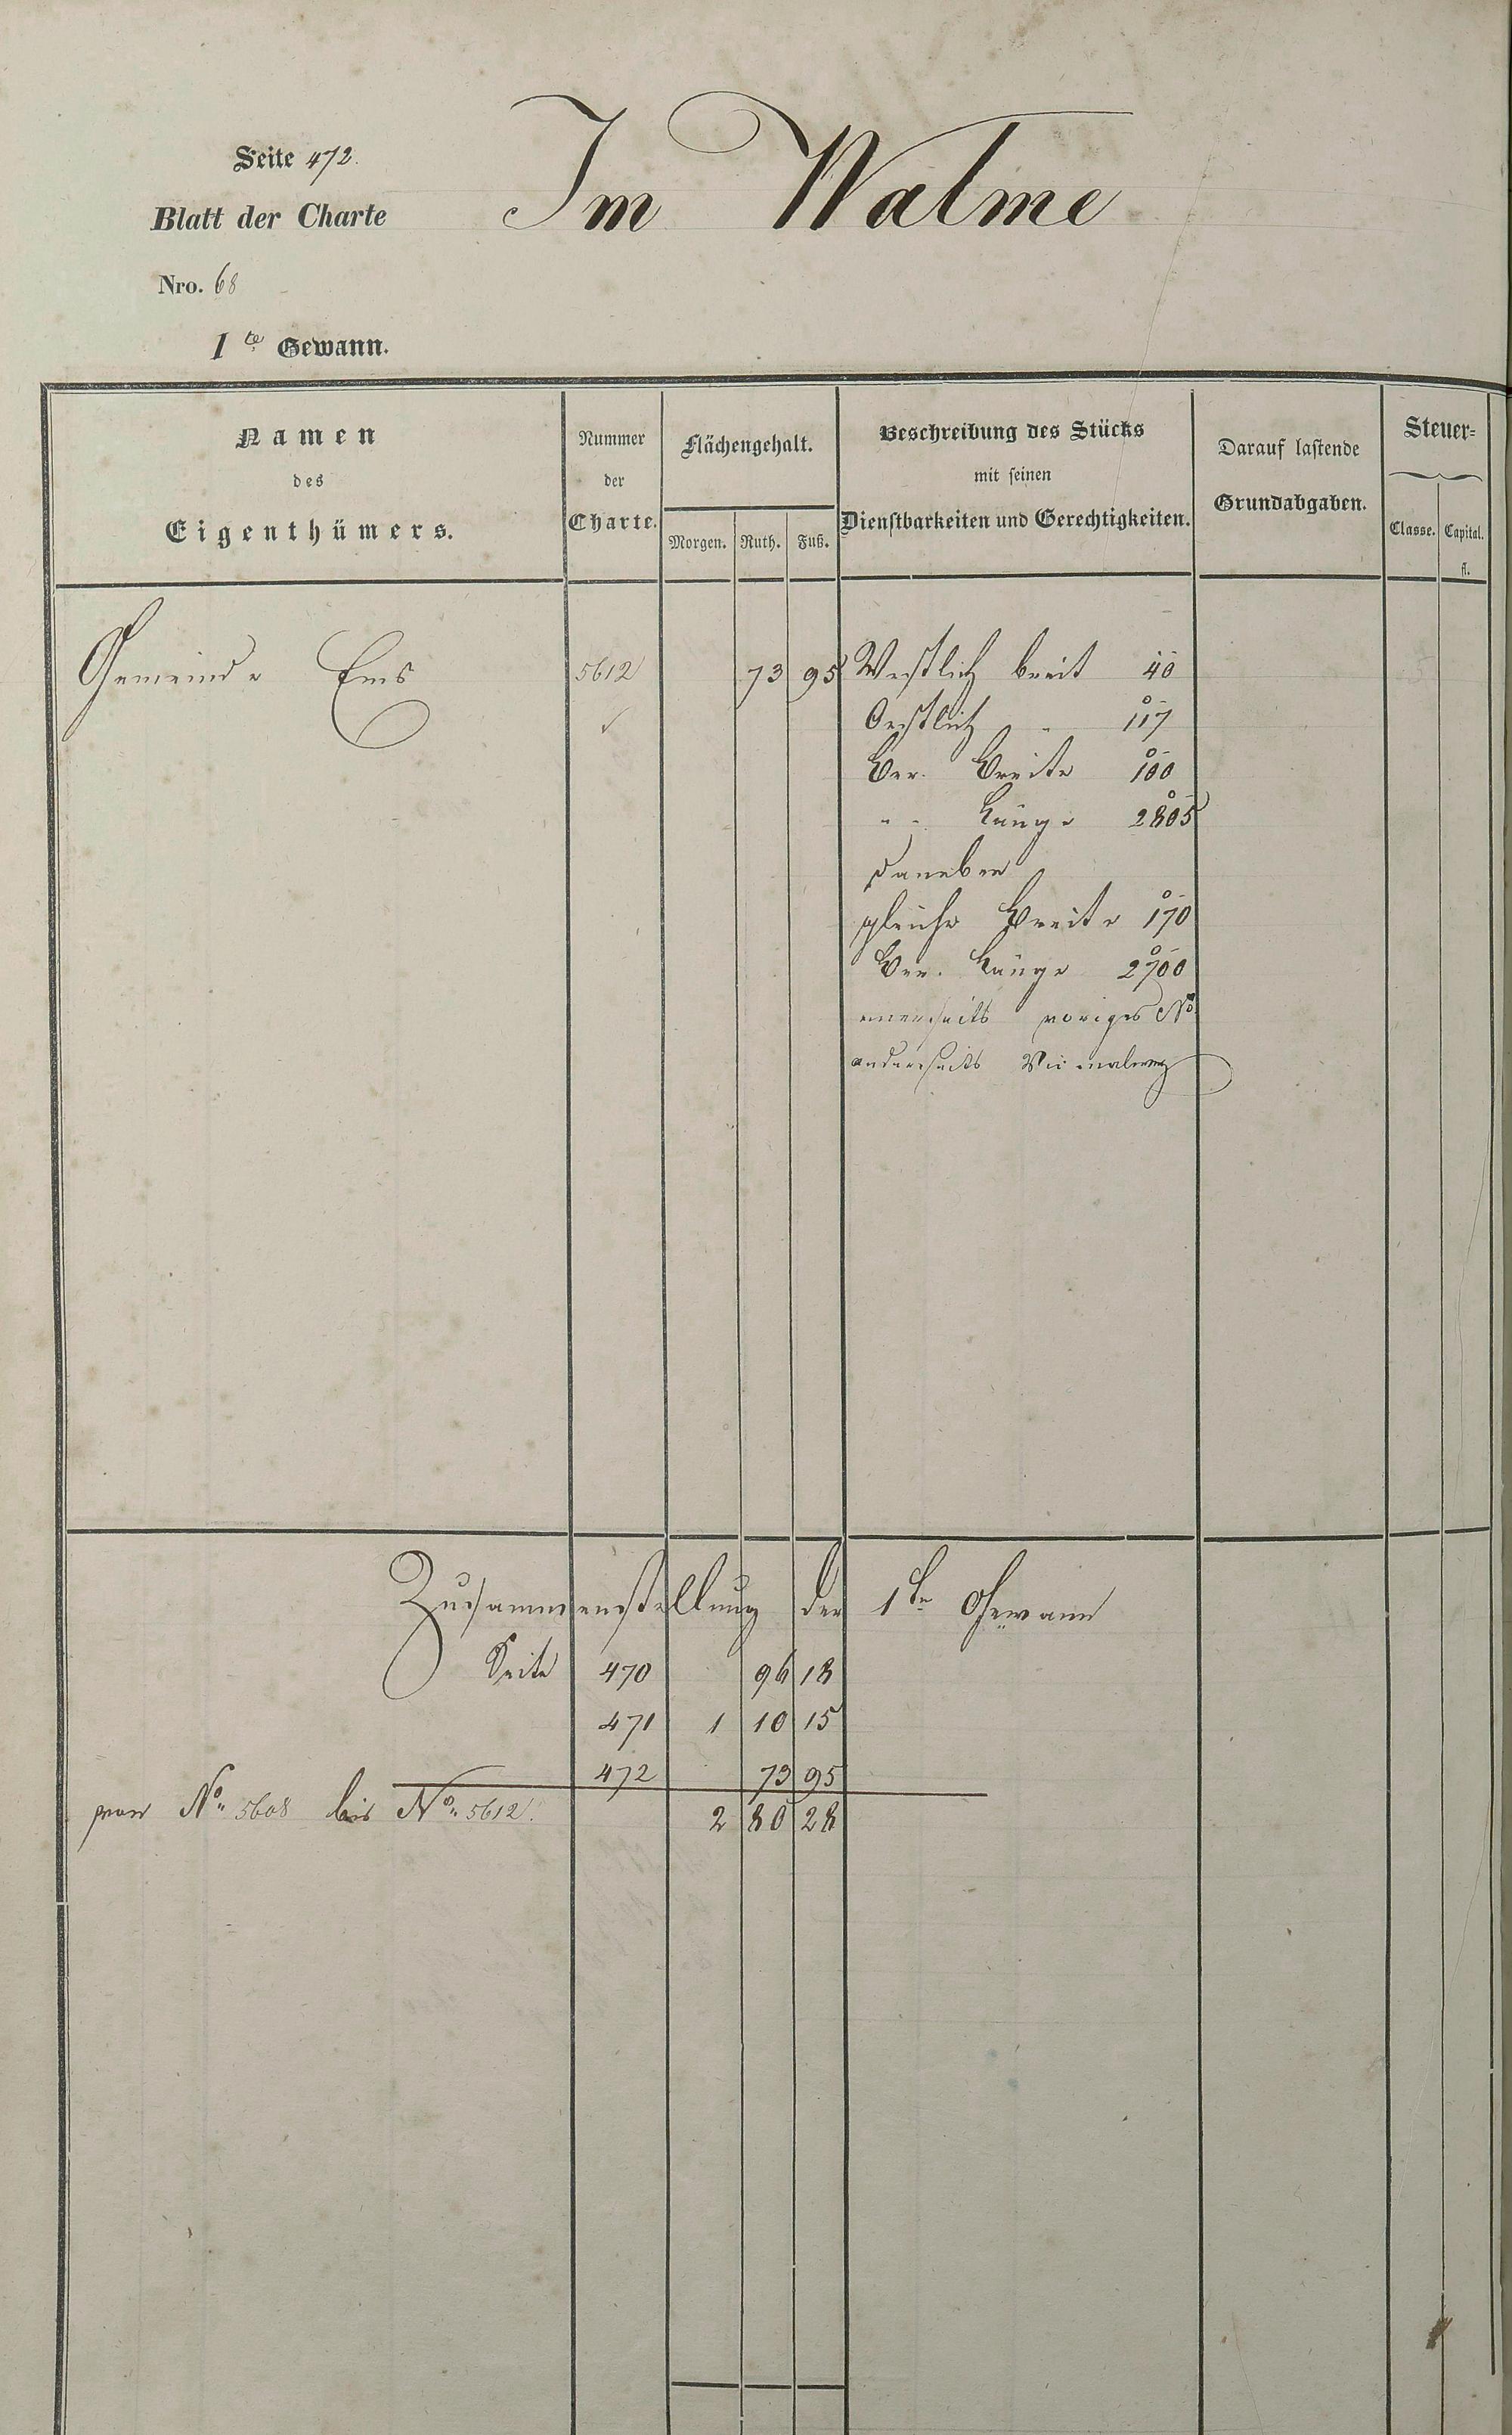 Seite 472.
Im Walme
Blatt der Charte
Nro. 68
1te Gewann.
Namen
des
Eigenthümers.
Nummer
der
Charte.
Flächengehalt.
Morgen. Ruth. Fuß.
Beschreibung des Stücks
mit seinen
Dienstbarkeiten und Gerechtigkeiten.
Darauf lastende
Grundabgaben.
Steuer-
Classe. Capital.
fl.
Gemeinde Ems 5612 73 95 Westlich breit 40
Oestlich " 117
Ber. Breite 100
" " Länge 2805
Daneben
gleiche Breite 170
Ber. Länge 2700
einerseits voriges No
anderseits
Zusammenstellung der 1ten Gewann
Seite 470 96 18
471 1 10 15
472 73 95
von No. 5608 bis No. 5612. 2 80 28